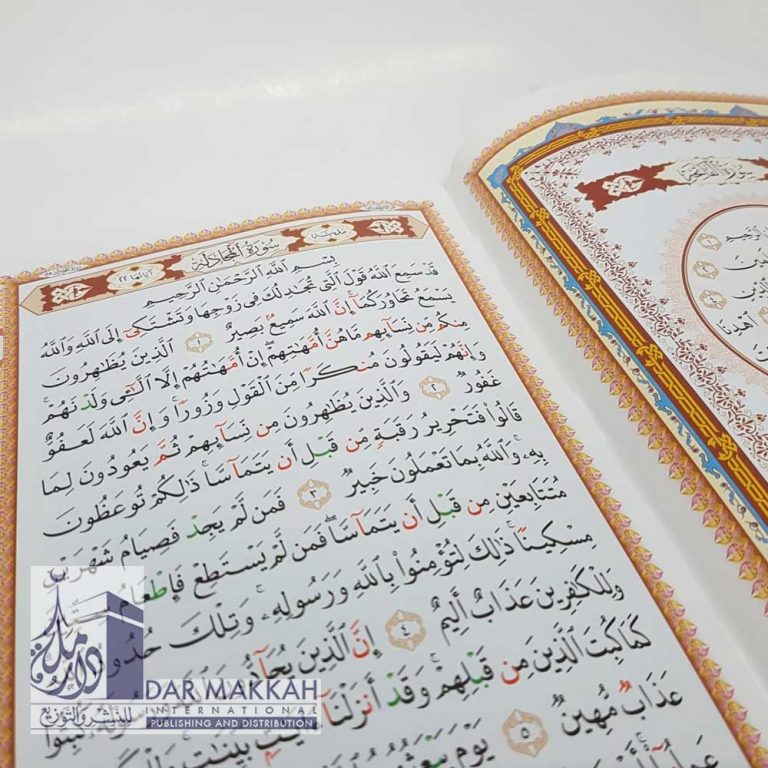 سُورَةُ المُجَادلَة
آيَاتُهَا ٢٢
بِسْمِ اللَّهِ الرَّحْمَٰنِ الرَّحِيمِ
قَدْ سَمِعَ اللَّهُ قَوْلَ الَّتِي تُجَٰدِلُكَ فِي زَوْجِهَا وَتَشْتَكِي إِلَى اللَّهِ وَاللَّهُ
يَسْمَعُ تَحَاوُرَكُمَا إِنَّ اللَّهَ سَمِيعٌ بَصِيرٌ ١ الَّذِينَ يُظَٰهِرُونَ
مِنكُم مِّن نِّسَآئِهِم مَّا هُنَّ أُمَّهَٰتِهِمْ إِنْ أُمَّهَٰتُهُمْ إِلَّا الَّٰٓـِٔي وَلَدْنَهُمْ
وَإِنَّهُمْ لَيَقُولُونَ مُنكَرًا مِّنَ الْقَوْلِ وَزُورًا وَإِنَّ اللَّهَ لَعَفُوٌّ
غَفُورٌ ٢ وَالَّذِينَ يُظَٰهِرُونَ مِن نِّسَآئِهِمْ ثُمَّ يَعُودُونَ لِمَا
قَالُوا فَتَحْرِيرُ رَقَبَةٍ مِّن قَبْلِ أَن يَتَمَآسَّا ذَٰلِكُمْ تُوعَظُونَ
بِهِ وَاللَّهُ بِمَا تَعْمَلُونَ خَبِيرٌ ٣ فَمَن لَّمْ يَجِدْ فَصِيَامُ شَهْرَيْنِ
مُتَتَابِعَيْنِ مِن قَبْلِ أَن يَتَمَآسَّا فَمَن لَّمْ يَسْتَطِعْ فَإِطْعَامُ
مِسْكِينًا ذَٰلِكَ لِتُؤْمِنُوا بِاللَّهِ وَرَسُولِهِ وَتِلْكَ حُدُودُ
وَلِلْكَٰفِرِينَ عَذَابٌ أَلِيمٌ ٤ إِنَّ الَّذِينَ يُحَآدُّونَ
كَمَا كُبِتَ الَّذِينَ مِن قَبْلِهِمْ وَقَدْ أَنزَلْنَآ ءَايَٰتٍ بَيِّنَٰتٍ
عَذَابٌ مُّهِينٌ ٥ يَوْمَ يَبْعَثُهُمُ
دار مكة
للنشر والتوزيع
DAR MAKKAH
INTERNATIONAL
PUBLISHING AND DISTRIBUTION